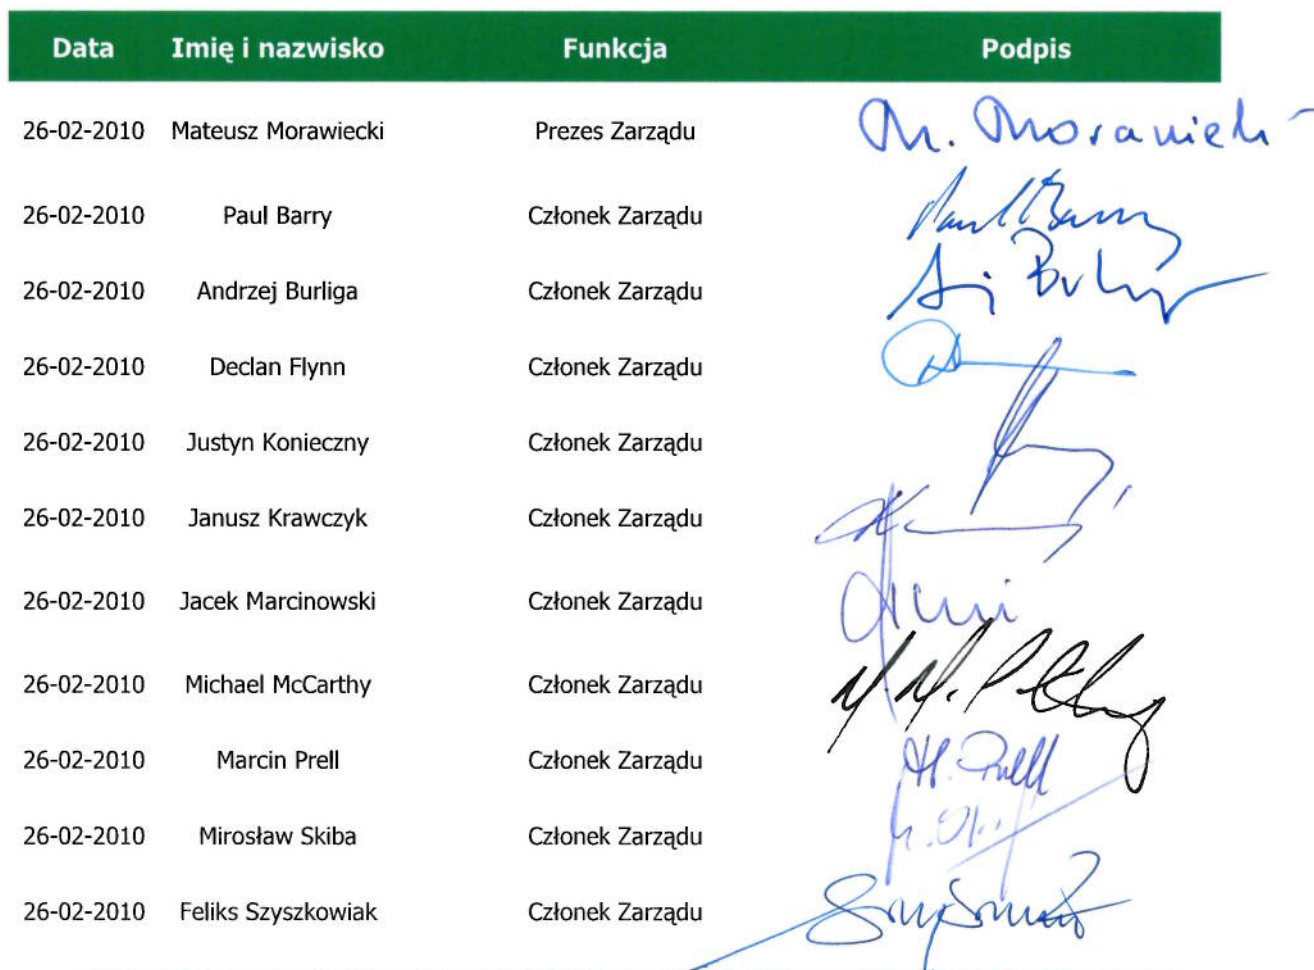 Data Imię i nazwisko Funkcja Podpis
26-02-2010 Mateusz Morawiecki Prezes Zarządu M. Morawiecki
26-02-2010 Paul Barry Członek Zarządu Paul Barry
26-02-2010 Andrzej Burliga Członek Zarządu
26-02-2010 Declan Flynn Członek Zarządu
26-02-2010 Justyn Konieczny Członek Zarządu
26-02-2010 Janusz Krawczyk Członek Zarządu
26-02-2010 Jacek Marcinowski Członek Zarządu
26-02-2010 Michael McCarthy Członek Zarządu
26-02-2010 Marcin Prell Członek Zarządu M. Prell
26-02-2010 Mirosław Skiba Członek Zarządu
26-02-2010 Feliks Szyszkowiak Członek Zarządu